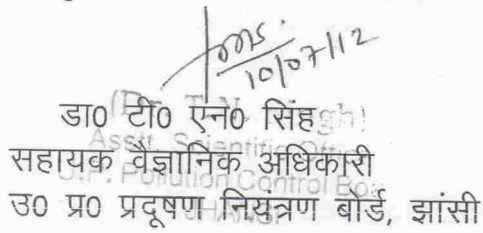 10/07/12
डा0 टी0 एन0 सिंह
(Dr. T.N. Singh)
सहायक वैज्ञानिक अधिकारी
Asstt. Scientific Officer
उ0 प्र0 प्रदूषण नियंत्रण बोर्ड, झांसी
U.P. Pollution Control Board
JHANSI